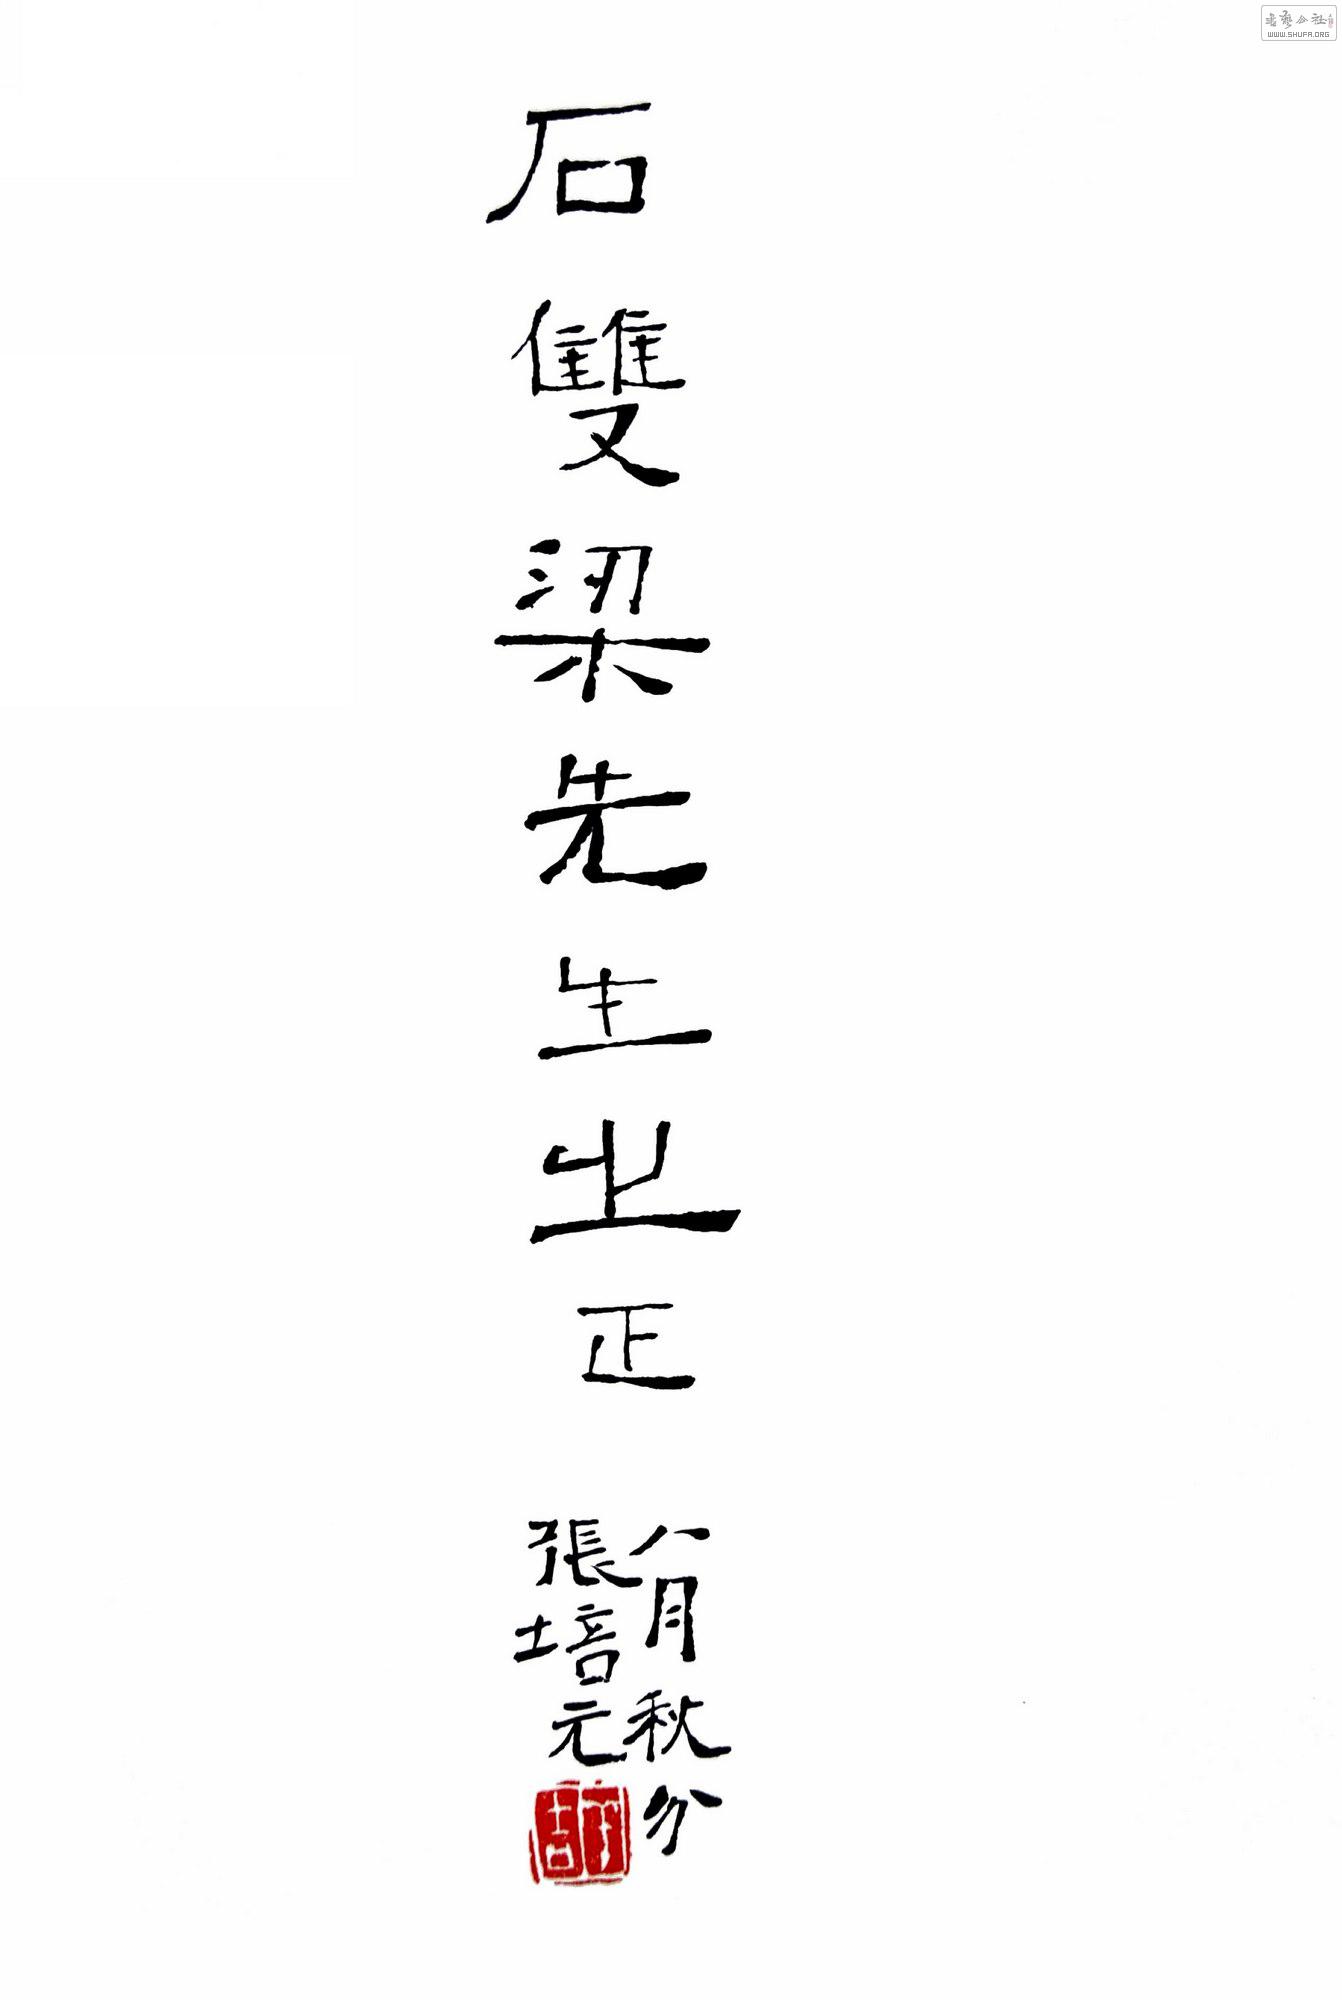 石雙梁先生之正
八月秋分
張培元
WWW.SHUFA.ORG